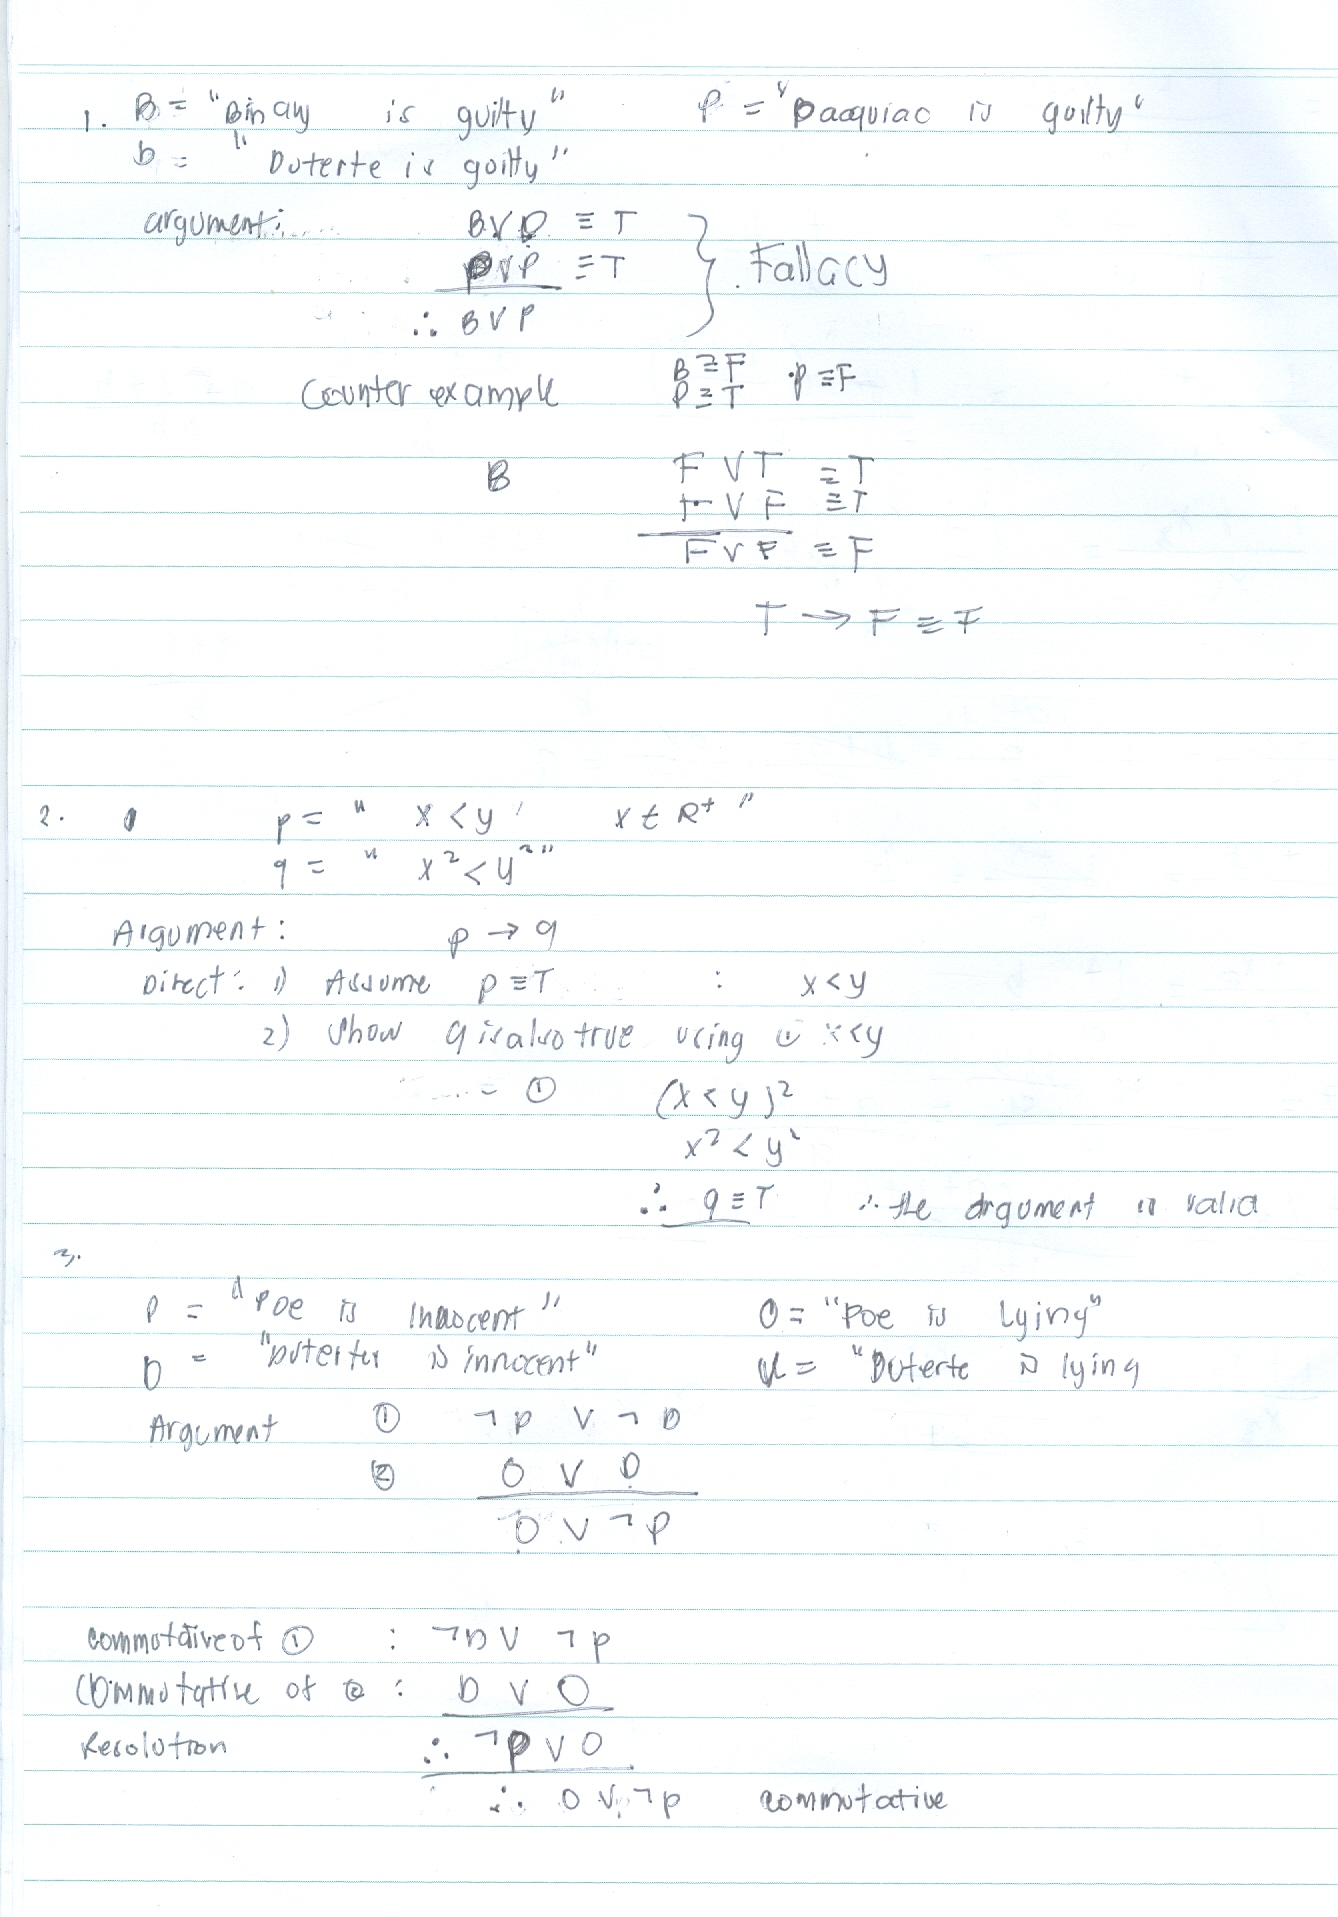 1. B = "Binay is guilty" P = "Pacquiao is guilty"
D = "Duterte is guilty"
argument: B∨D ≡ T
D∨P ≡ T } Fallacy
∴ B∨P
Counter example B≡F P≡F
D≡T
B F∨T ≡T
T∨F ≡T
F∨F ≡F
T → F ≡ F
2. p = " x<y, x∈R+ "
q = " x²<y² "
Argument: p → q
Direct: 1) Assume p≡T : x<y
2) Show q is also true using x<y
① (x<y)²
x²<y²
∴ q≡T ∴ the argument is valid
3.
P = "Poe is Innocent" O = "Poe is Lying"
D = "Duterte is innocent" U = "Duterte is lying
Argument ① ¬P ∨ ¬D
② O ∨ D
O ∨ ¬P
commutative of ① : ¬D ∨ ¬P
Commutative of ② : D ∨ O
Resolution ∴ ¬P ∨ O
∴ O ∨ ¬P commutative